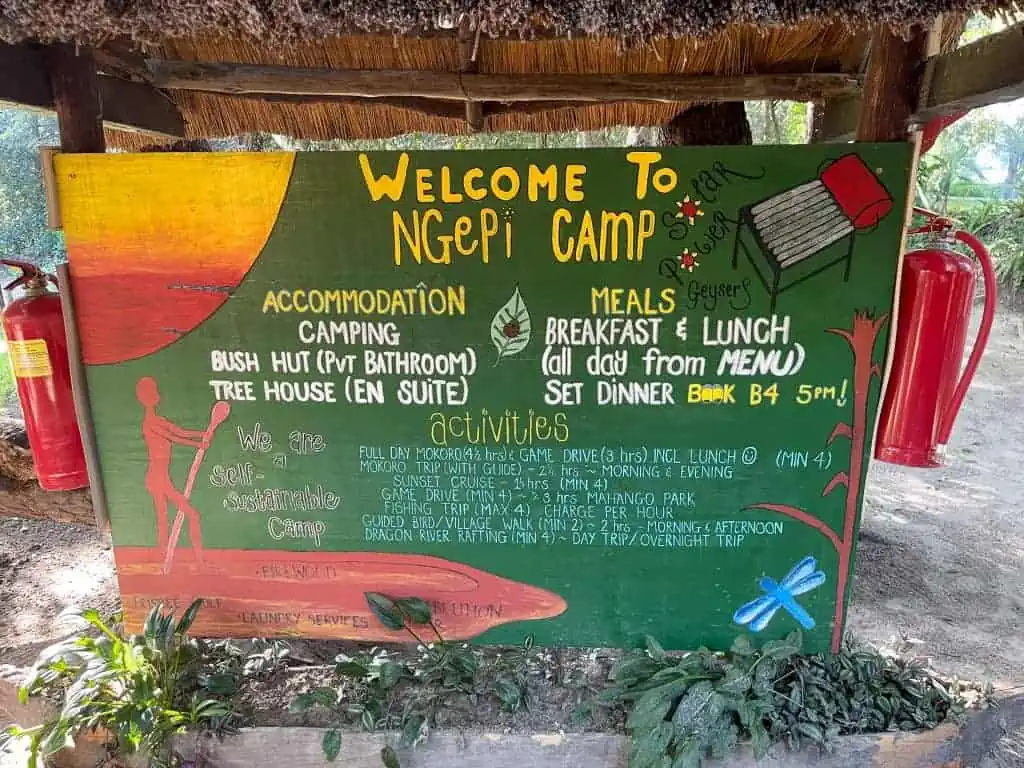 WELCOME TO
NGEPi CAMP
SOLAR
POWER
Geysers
ACCOMMODATION
CAMPING
BUSH HUT (PVT BATHROOM)
TREE HOUSE (EN SUITE)
MEALS
BREAKFAST & LUNCH
(all day from MENU)
SET DINNER BOOK B4 5PM!
activities
FULL DAY MOKORO (4½ hrs) & GAME DRIVE (3 hrs) INCL LUNCH ☺ (MIN 4)
MOKORO TRIP (WITH GUIDE) - 2½ hrs ~ MORNING & EVENING
SUNSET CRUISE - 1½ hrs (MIN 4)
GAME DRIVE (MIN 4) ~ 3 hrs MAHANGO PARK
FISHING TRIP (MAX 4) CHARGE PER HOUR
GUIDED BIRD/VILLAGE WALK (MIN 2) ~ 2 hrs - MORNING & AFTERNOON
DRAGON RIVER RAFTING (MIN 4) ~ DAY TRIP/OVERNIGHT TRIP
We are
a
self-
sustainable
Camp
•FIREWOOD
FRISBEE GOLF
•LAUNDRY SERVICES